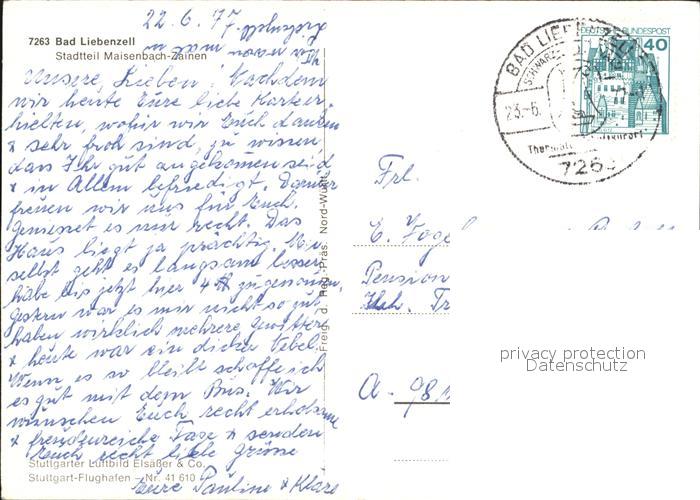 22. 6. 77.
7263 Bad Liebenzell
Stadtteil Maisenbach-Zainen
Unsere Lieben! Nachdem
wir heute Eure liebe Karte er-
hielten, wofür wir Euch danken
& sehr froh sind, zu wissen,
dass Ihr gut angekommen seid
& in Allem befriedigt. Darum
freuen wir uns für Euch.
Geniesset es nur recht. Das
Haus liegt ja prächtig. Mir
selbst geht es langsam besser,
habe bis jetzt hier 4 zugenommen,
gestern war es mir nicht so gut
haben wirklich mehrere Gewitter
& heute war ein dicker Nebel.
Wenn es so bleibt schaffe ich
es gut mit dem Bus. Wir
wünschen Euch recht erholsame
& freudenreiche Tage & senden
Euch recht liebe Grüsse
Eure Pauline & Kläre
Stuttgarter Luftbild Elsäßer & Co.
Stuttgart-Flughafen – Nr. 41 610
Freig. d. Reg.-Präs. Nord-Württ.
DEUTSCHE BUNDESPOST
40
BAD LIEBENZELL
23.-6.
726
Frl.
E. Vogel
Pension
A - 98
privacy protection
Datenschutz